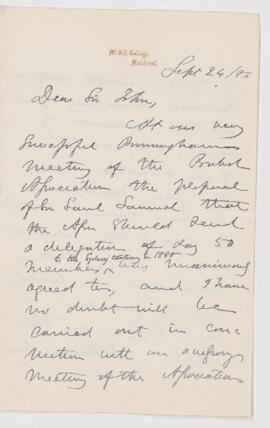 McGill College,
Montreal.
Sept 24/86
Dear Sir John,
At our very
successful Birmingham
meeting of the British
Association the proposal
of Sir Saul Samuel that
the Assn should send
a delegation of say 50
to the Sydney centenary in 1888
members, was unanimously
agreed to, and I have
no doubt will be
carried out in con=
nection with an
meeting of the Association